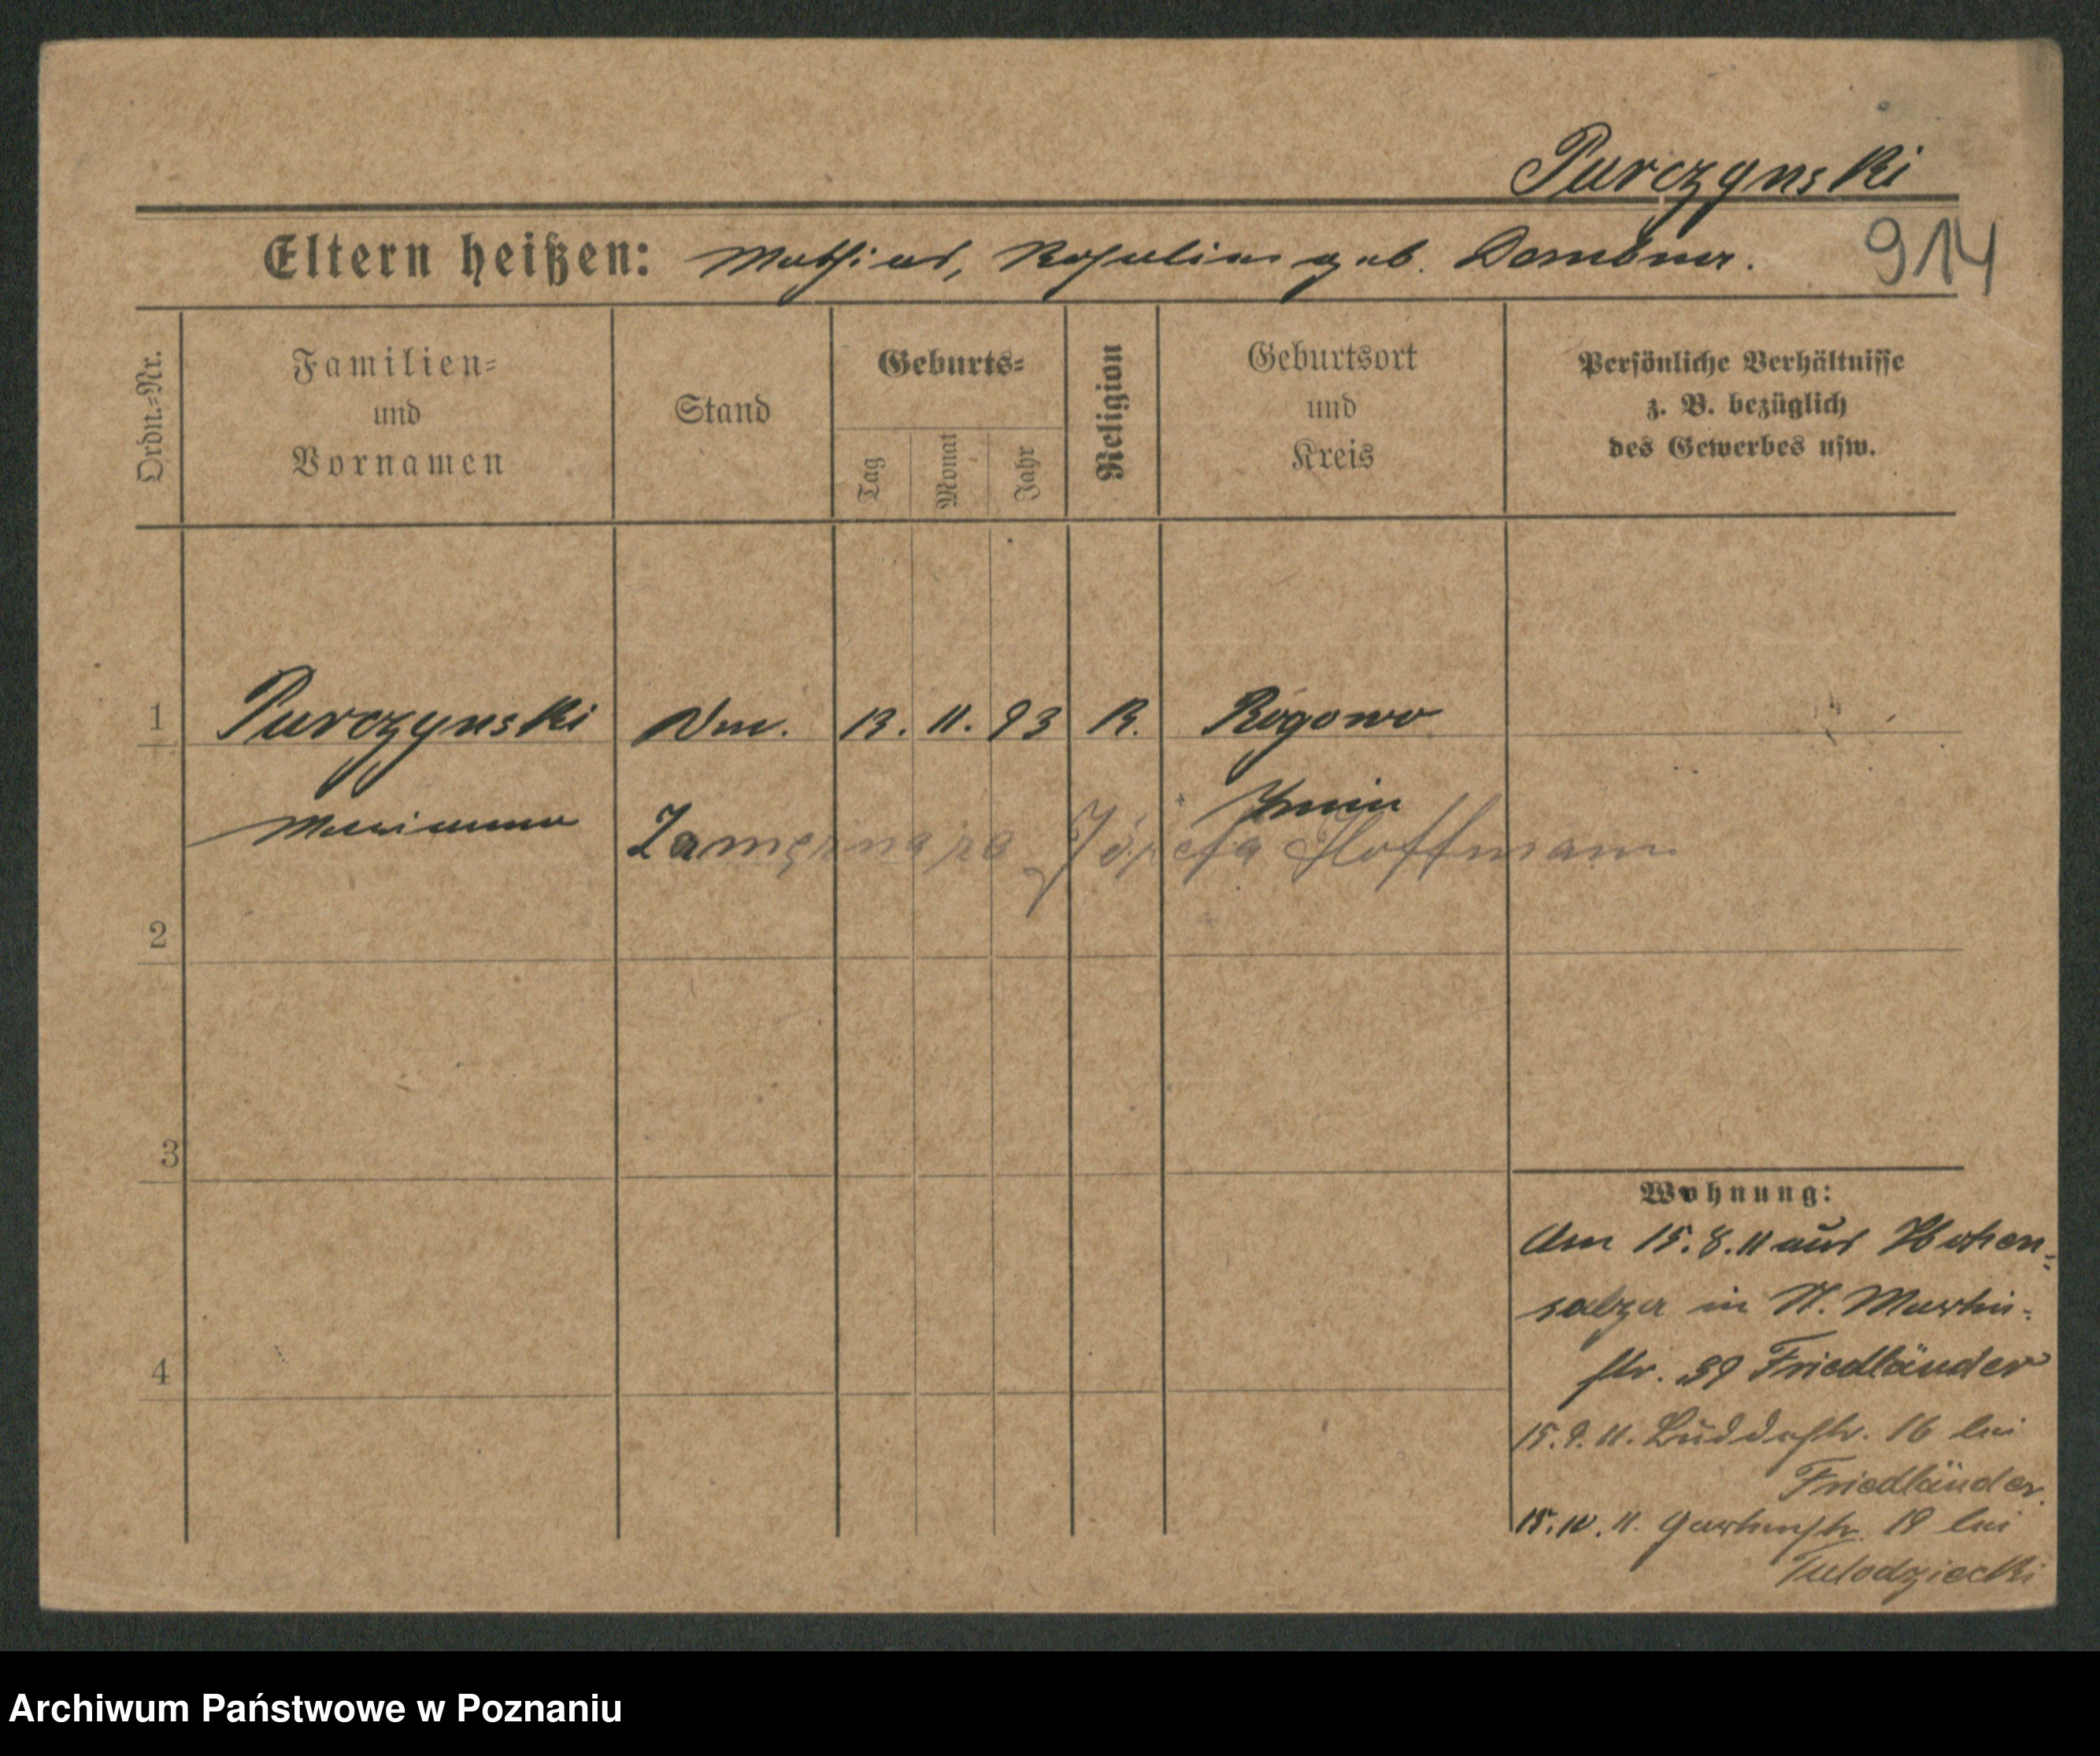 Purczynski
Eltern heißen: Mathias, Rosalie geb.
914
Ordn.-Nr.
Familien-
und
Vornamen
Stand
Geburts-
Tag
Monat
Jahr
Religion
Geburtsort
und
Kreis
Persönliche Verhältnisse
z. B. bezüglich
des Gewerbes usw.
1 Purczynski 13. 11. 93 K. Rogowo
Marianna Znin
Zamężna za Józefa Hoffmann
2
3
4
Wohnung:
Am 15.8.11 aus Hohen-
salza in St. Martin-
str. 39 Friedländer
15.9.11. 16 bei
Friedländer.
15.10.11. Gartenstr. 19 bei
Tulodziecki
Archiwum Państwowe w Poznaniu